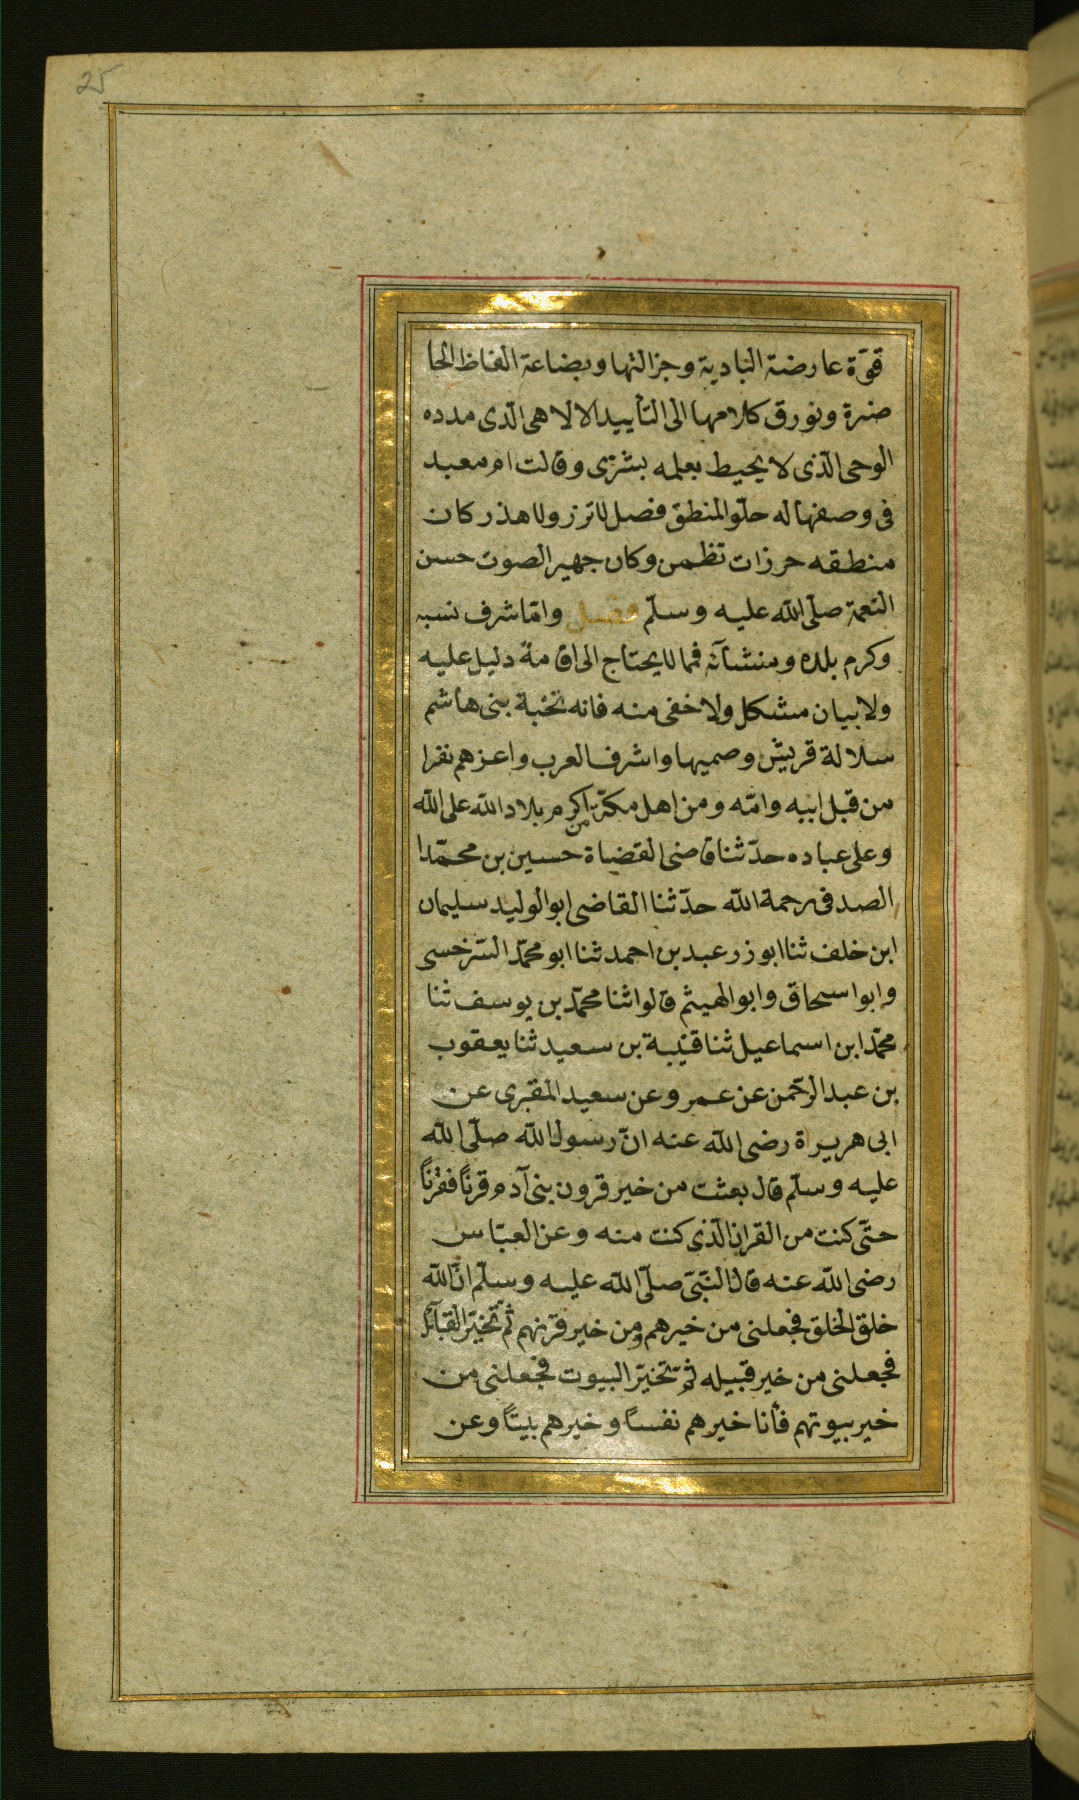 25
قوّة عارضة البادية وجزالتها وبضاعة الفاظ الحا
ضرة ورونق كلامها الى التأييد الالاهى الّذى مدده
الوحى الّذى لا يحيط بعلمه بشرى وقالت ام معبد
فى وصفها له حلّو المنطق فصل لا نزر ولا هذر كان
منطقه خرزات نظمن وكان جهير الصوت حسن
النغمة صلّى الله عليه وسلّم فصل وامّا شرف نسبه
وكرم بلده ومنشأه فمما لا يحتاج الى اقامة دليل عليه
ولا بيان مشكل ولا خفى منه فانه نخبة بنى هاشم
سلالة قريش وصميها واشرف العرب واعزهم نفرا
من قبل ابيه وامّه ومن اهل مكة من اكرم بلاد الله على الله
وعلى عباده حدّثنا قاضى القضاة حسين بن محمّدا
الصدفى رحمة الله حدّثنا القاضى ابو الوليد سليمان
ابن خلف ثنا ابو ذر عبد بن احمد ثنا ابو محمّد السّرخسى
وابو اسحاق وابو الهيثم قالوا ثنا محمّد بن يوسف ثنا
محمّد ابن اسماعيل ثنا قتيبة بن سعيد ثنا يعقوب
بن عبد الرّحمن عن عمرو عن سعيد المقبرى عن
ابى هريرة رضى الله عنه انّ رسول الله صلّى الله
عليه وسلّم قال بعثت من خير قرون بنى آدم قرنًا فقرنًا
حتّى كنت من القرن الّذى كنت منه وعن العبّاس
رضى الله عنه قال النّبىّ صلّى الله عليه وسلّم انّ الله
خلق الخلق فجعلنى من خيرهم ومن خير قرنهم ثمّ تخيّر القبآئل
فجعلنى من خير قبيله ثمّ تخيّر البيوت فجعلنى من
خير بيوتهم فأنا خيرهم نفسًا وخيرهم بيتًا وعن